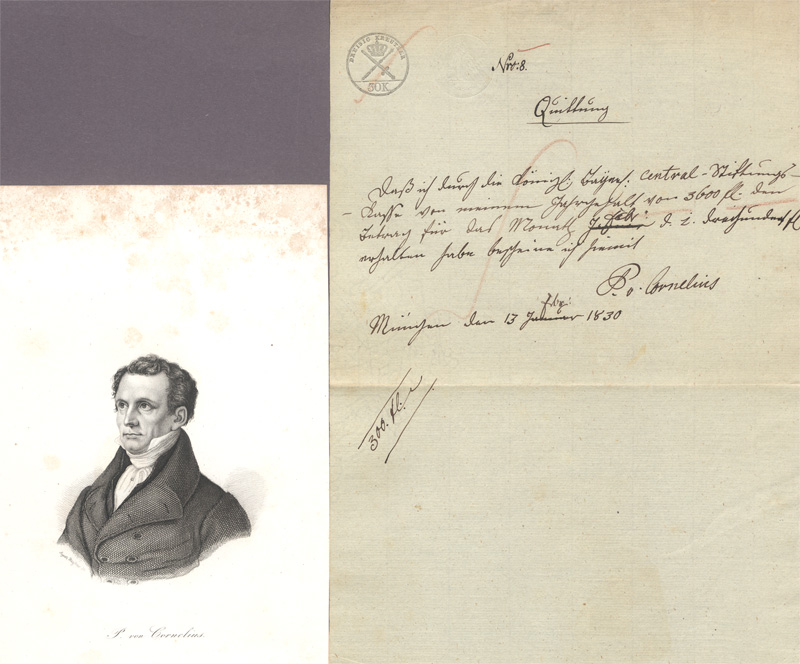 50K
Nro: 8.
Quittung
Daß ich durch die Königl: Bayer: Central-Stiftungs-
-Kasse von meinem Jahrgehalt von 3600 fl. den
Betrag für das Monat Januar Febr: d. i. dreihundert fl
erhalten habe bescheine ich hiemit
P. v. Cornelius
München den 13 Januar Febr: 1830
300. fl.
P. von Cornelius